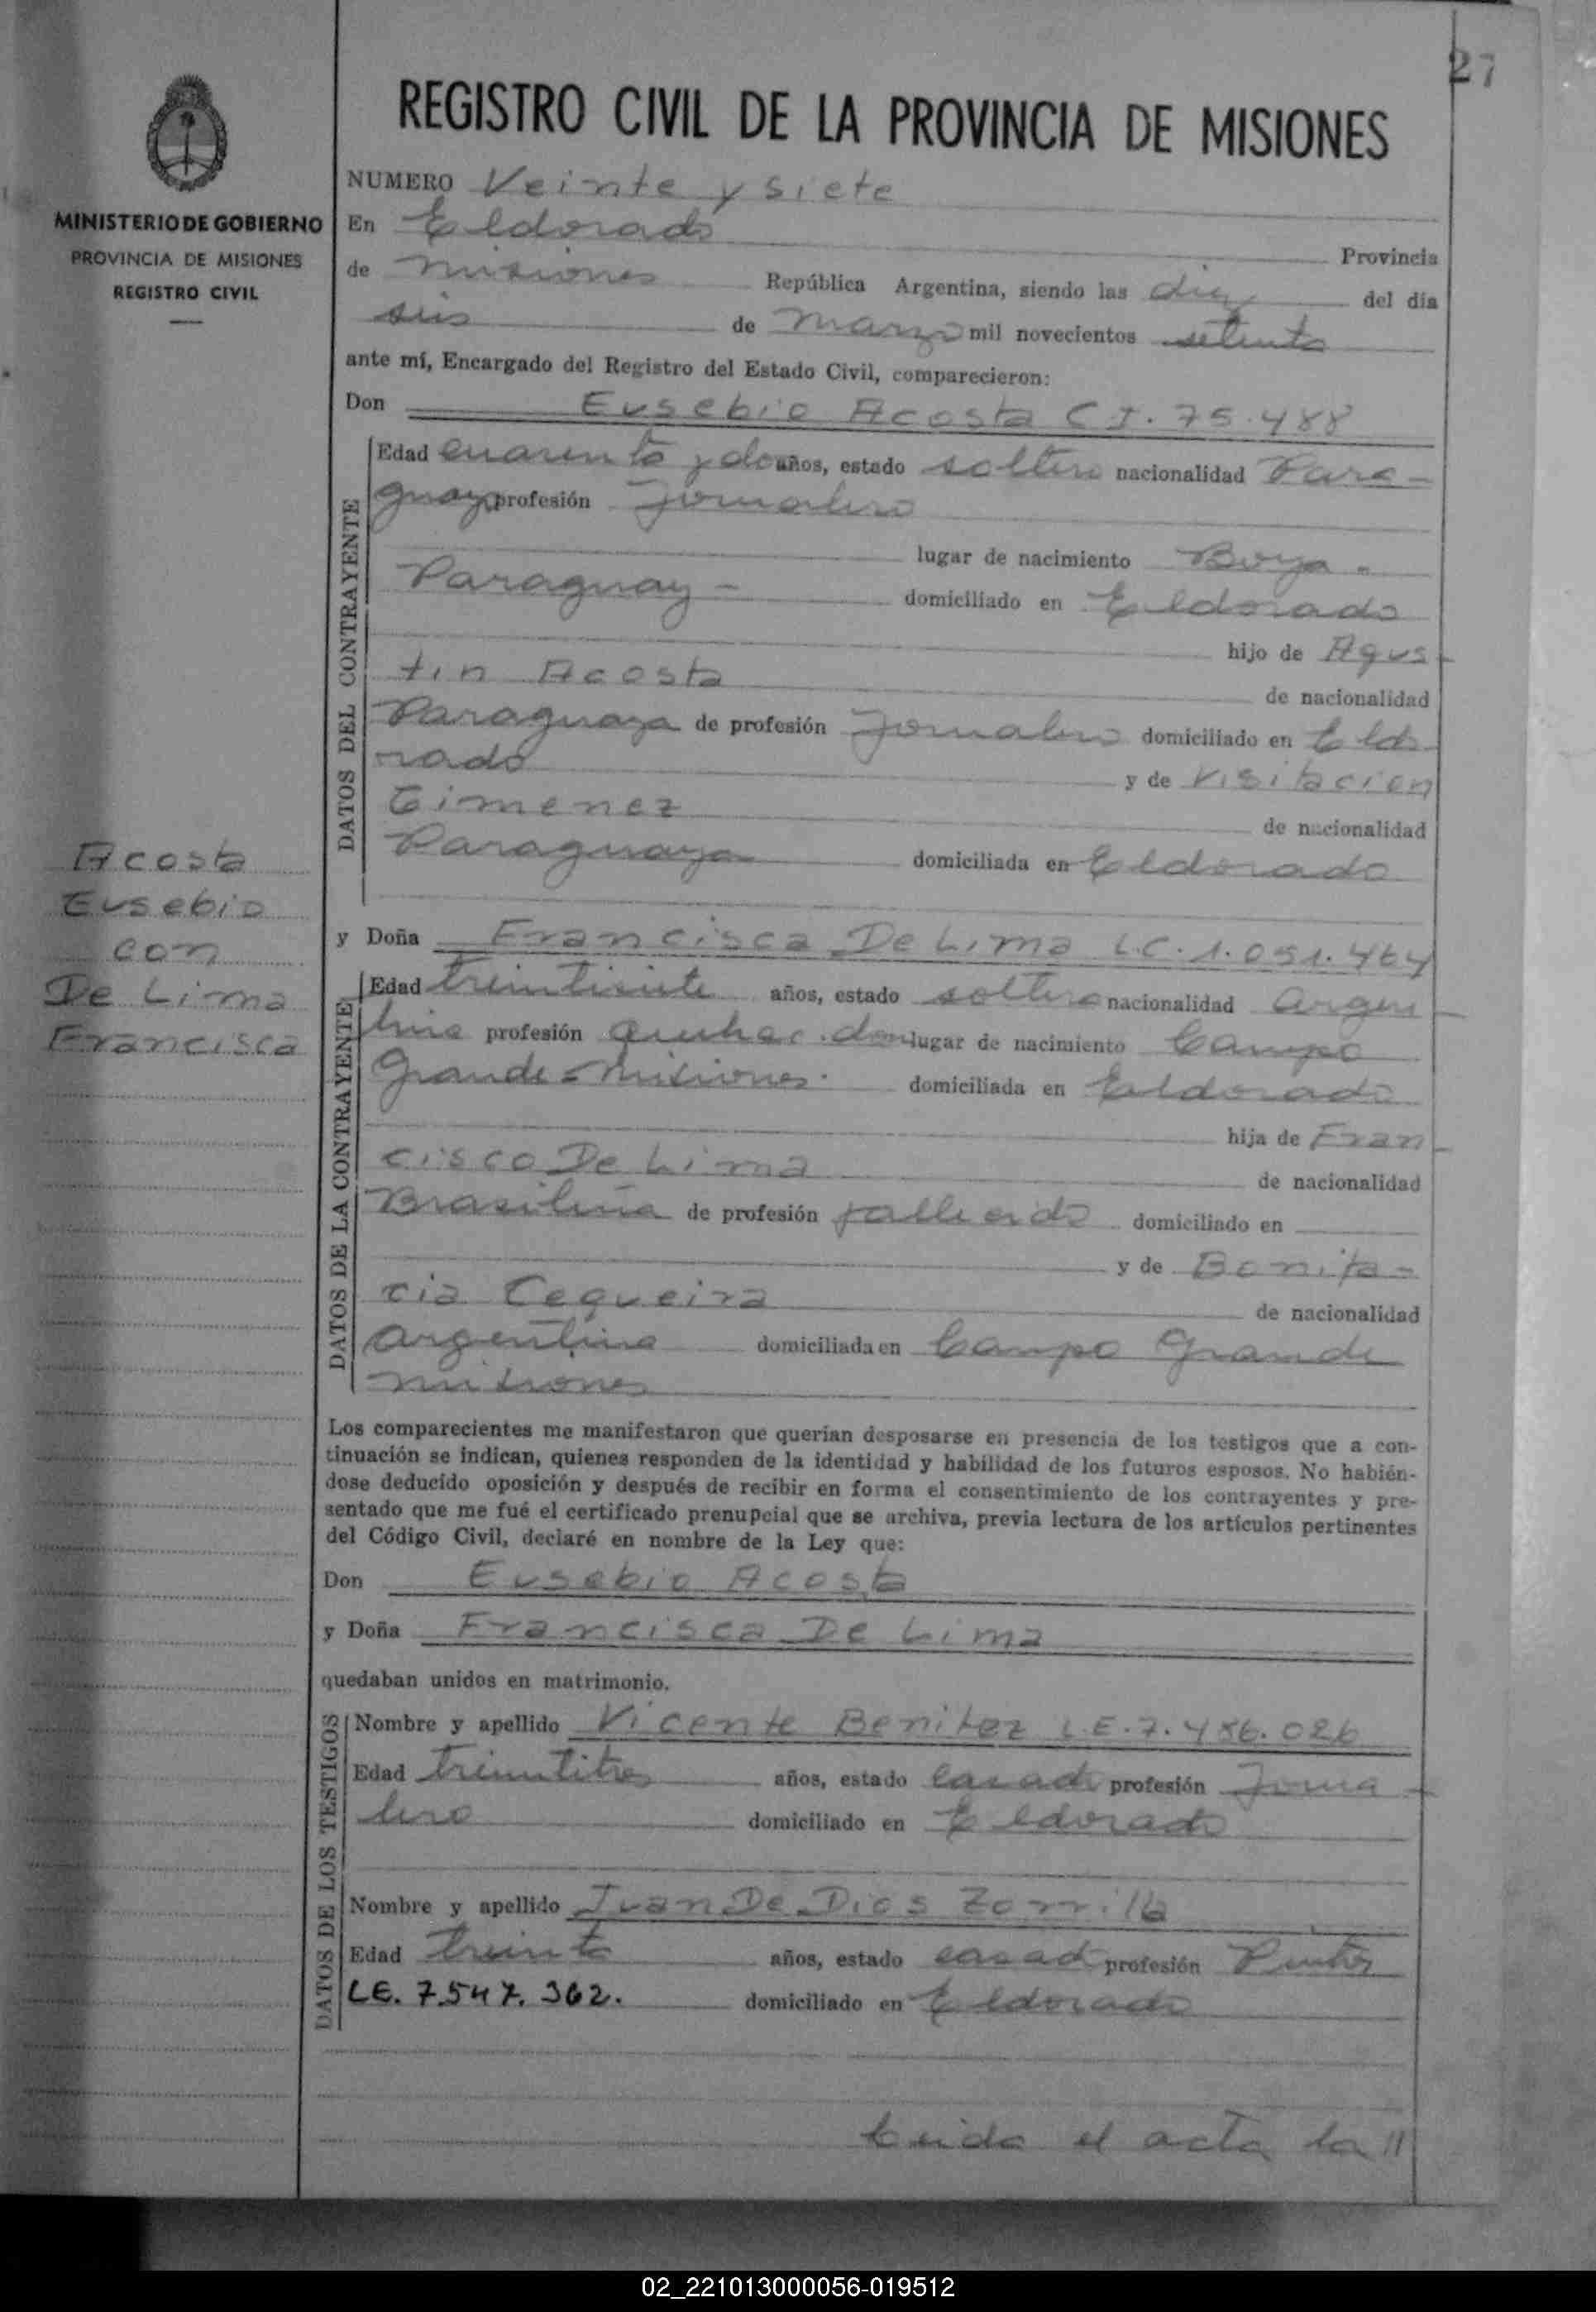 27
MINISTERIO DE GOBIERNO
PROVINCIA DE MISIONES
REGISTRO CIVIL
Acosta
Eusebio
con
De Lima
Francisca
REGISTRO CIVIL DE LA PROVINCIA DE MISIONES
NUMERO Veinte y siete
En Eldorado Provincia
de misiones República Argentina, siendo las diez del día
seis de marzo mil novecientos setenta
ante mí, Encargado del Registro del Estado Civil, comparecieron:
Don Eusebio Acosta C I. 75.488
DATOS DEL CONTRAYENTE
Edad cuarenta y dos años, estado soltero nacionalidad Para-
guaya profesión Jornalero
lugar de nacimiento Borja-
Paraguay- domiciliado en Eldorado
hijo de Agus-
tin Acosta de nacionalidad
Paraguaya de profesión Jornalero domiciliado en Eldo
rado y de Visitacion
Gimenez de nacionalidad
Paraguaya domiciliada en Eldorado
y Doña Francisca De Lima L.C. 1.051.464
DATOS DE LA CONTRAYENTE
Edad treintisiete años, estado soltera nacionalidad argen-
tina profesión quehac. dom lugar de nacimiento Campo
Grande-Misiones. domiciliada en Eldorado
hija de Fran-
cisco De Lima de nacionalidad
Brasileña de profesión fallecido domiciliado en
y de Bonifa-
cia Cequeira de nacionalidad
argentina domiciliada en Campo Grande
misiones
Los comparecientes me manifestaron que querían desposarse en presencia de los testigos que a con-
tinuación se indican, quienes responden de la identidad y habilidad de los futuros esposos. No habién-
dose deducido oposición y después de recibir en forma el consentimiento de los contrayentes y pre-
sentado que me fué el certificado prenupcial que se archiva, previa lectura de los artículos pertinentes
del Código Civil, declaré en nombre de la Ley que:
Don Eusebio Acosta
y Doña Francisca De Lima
quedaban unidos en matrimonio.
DATOS DE LOS TESTIGOS
Nombre y apellido Vicente Benitez L.E. 7.486.026
Edad treintitres años, estado casado profesión Jorna-
lero domiciliado en Eldorado
Nombre y apellido Juan De Dios Zorrilla
Edad treinta años, estado casado profesión Pintor
L.E. 7.547.362. domiciliado en Eldorado
Leida el acta la //
02_221013000056-019512